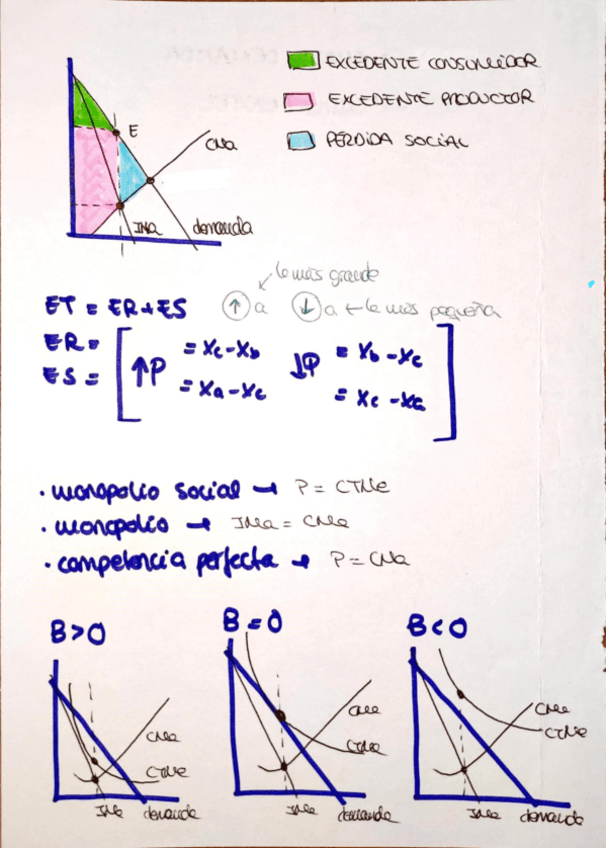 EXCEDENTE CONSUMIDOR
EXCEDENTE PRODUCTOR
PÉRDIDA SOCIAL
E
CMa
IMa demanda
le más grande
ET = ER + ES ↑ a ↓ a ← le más pequeña
ER =
ES =
↑P = Xc - Xb ↓P = Xb - Xc
= Xa - Xc = Xc - Xa
· monopolio social → P = CTMe
· monopolio → IMa = CMa
· competencia perfecta → P = CMa
B>0 B=0 B<0
CMa CMa CMa
CTMe CTMe CTMe
IMa demanda IMa demanda IMa demanda